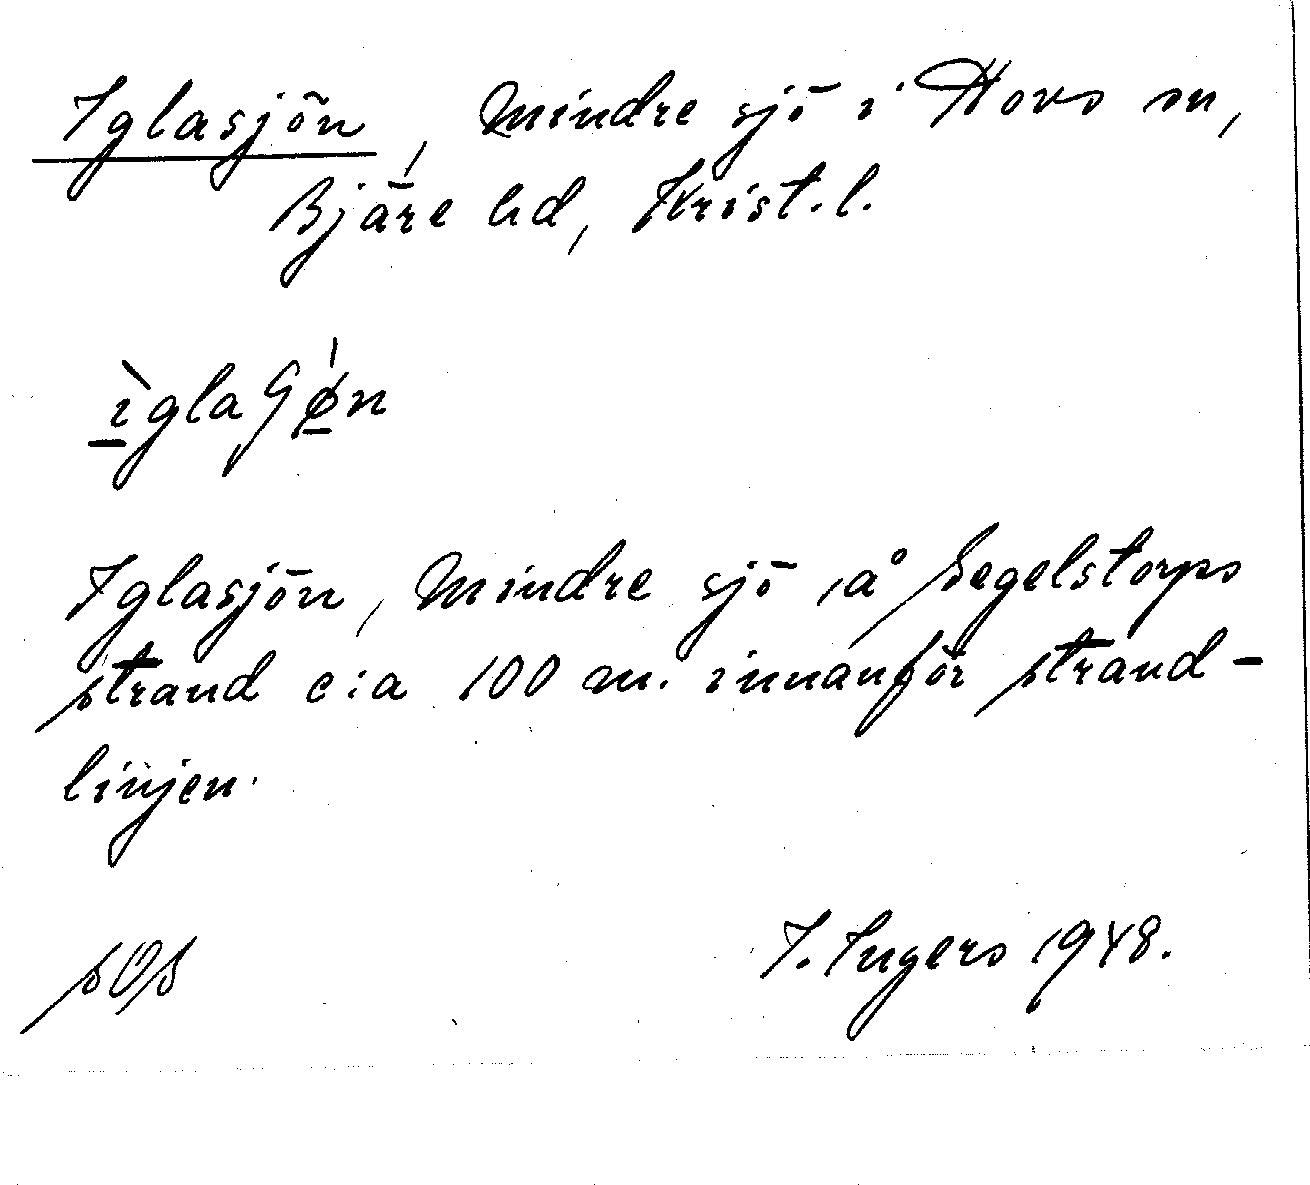 Iglasjön, Mindre sjö i Hovs sn,
Bjäre hd, Krist.l.
ìglaʃǿn
Iglasjön, Mindre sjö å Segelstorps
strand c:a 100 m. innanför strand-
linjen.
I. Ingers 1948.